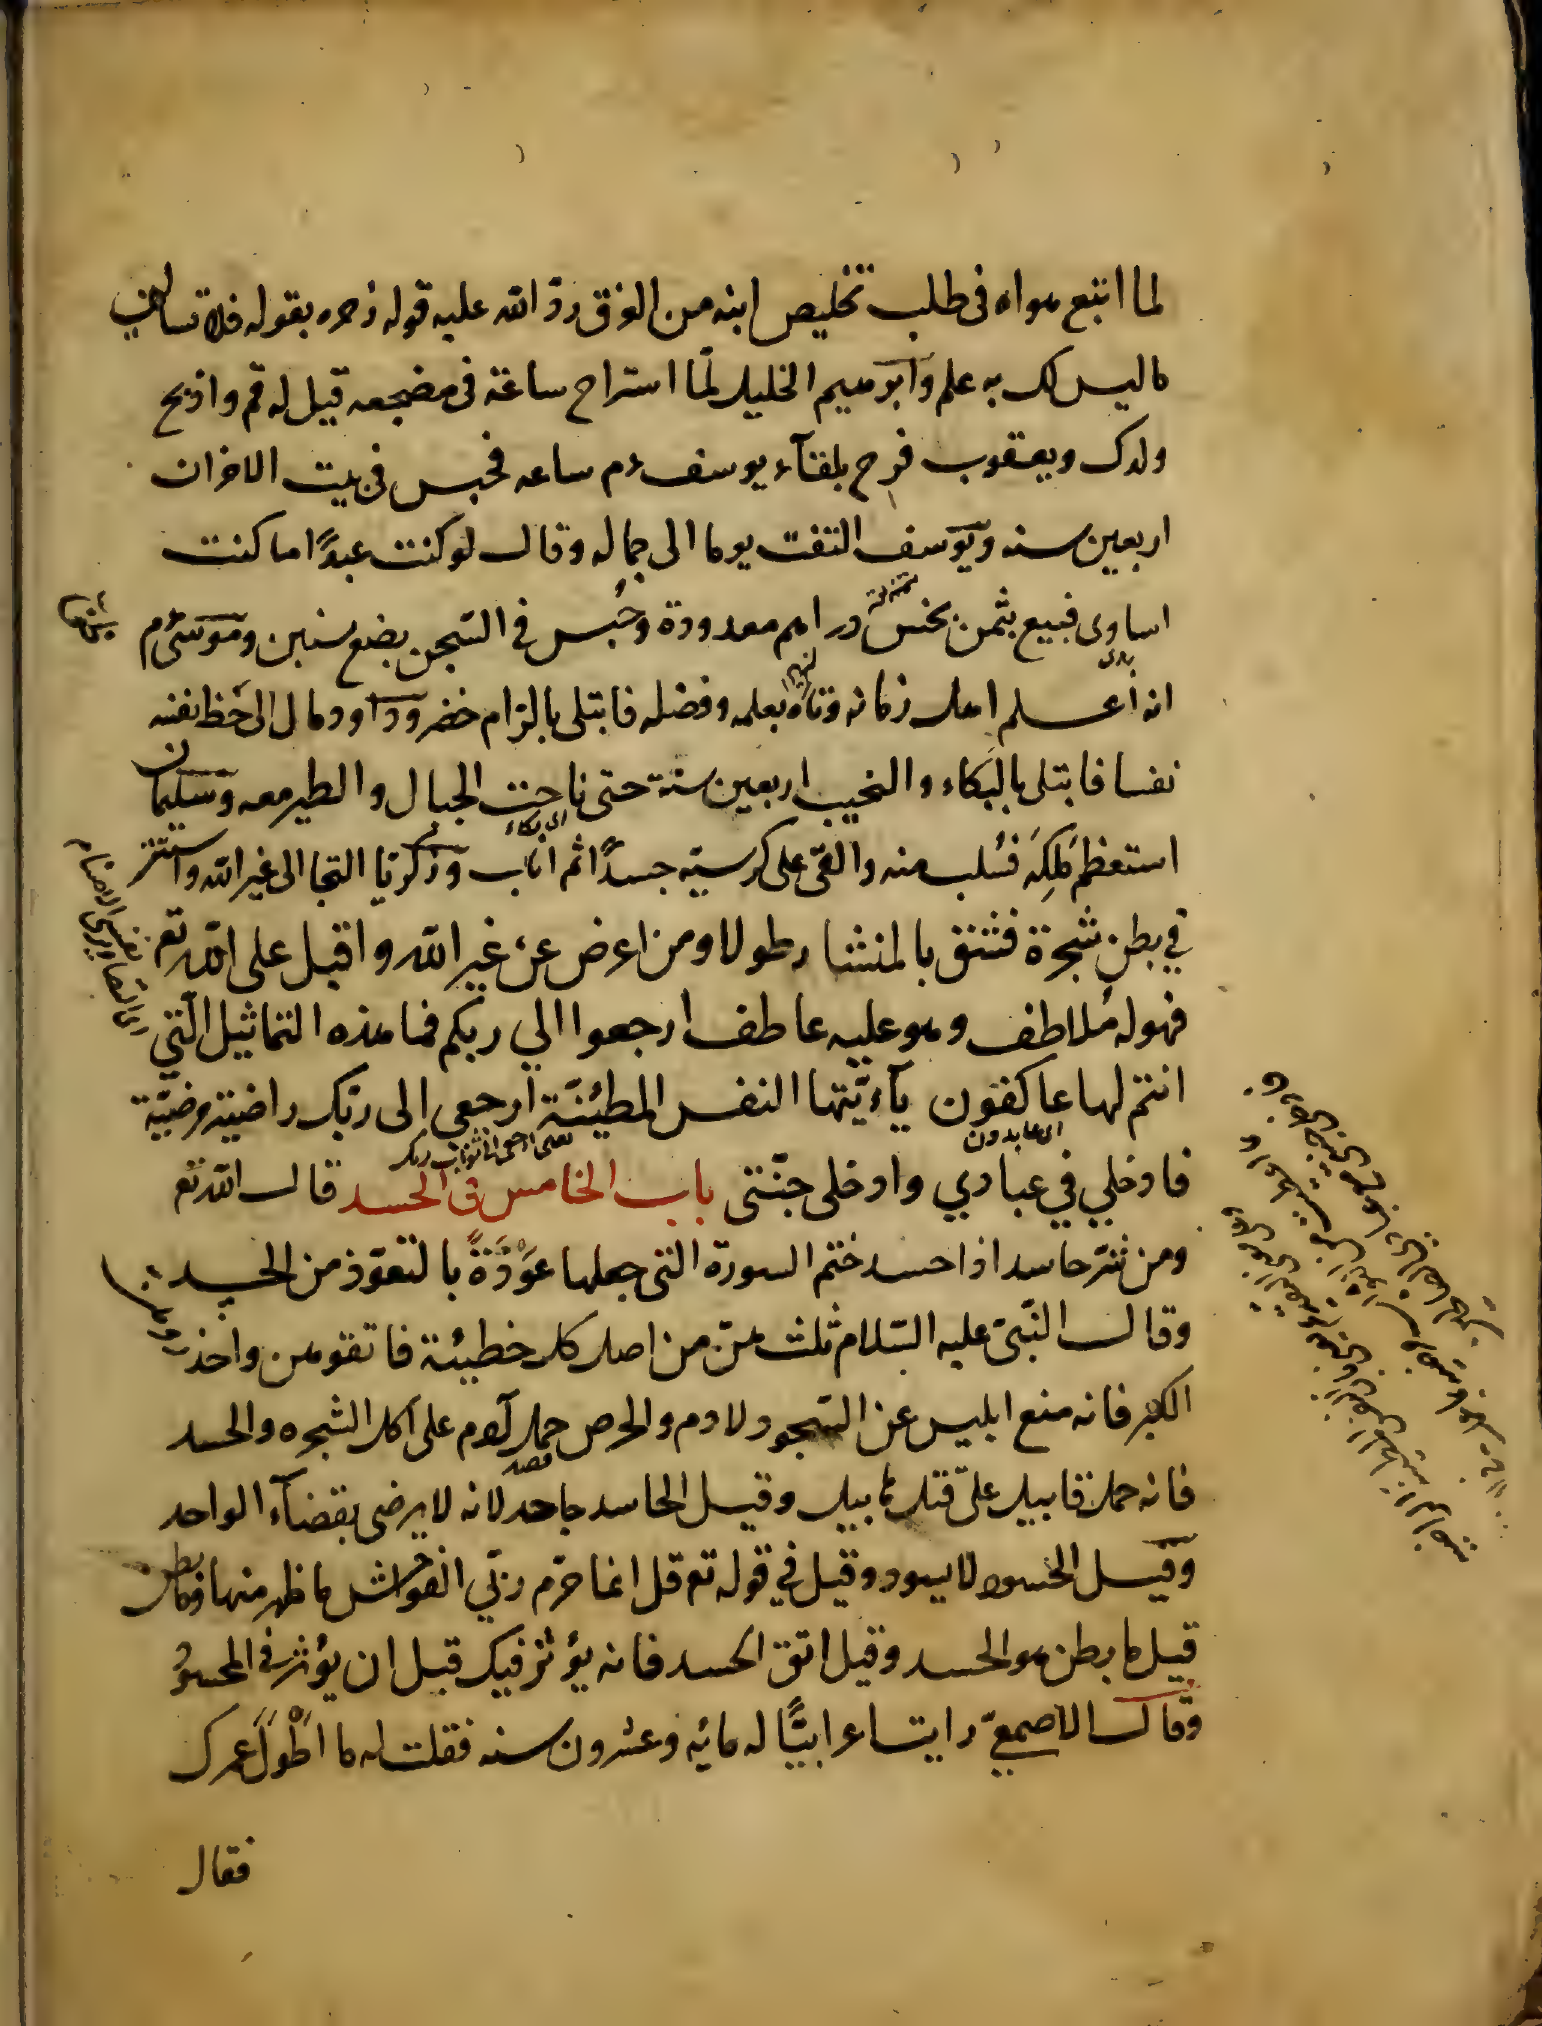 لما اتبع هواه فى طلب تخليص ابنه من الغرق ردّ الله عليه قوله زجره بقوله فلا تسالن
ما ليس لك به علم وابرهيم الخليل لمّا استراح ساعة فى مضجعه قيل له قم واذبح
ولدك ويعقوب فرح بلقآء يوسف ءم ساعه فحبس فى بيت الاحزان
اربعين سنه ويوسف التفت يوما الى جماله وقال لو كنت عبدًا ما كنت
اساوى فبيع بثمن بخس دراهم معدودة وحُبس في السّجن بضع سنين وموسىٰ ءم
انه أعلم اهل زمانه وتاه بعلمه وفضله فابتلى بالزام خضر وداود مال الى حَظ نفسه
نفسا فابتلى بالبكاء والنحيب اربعين سنة حتى ناحت الجبال والطير معه وسليمان
اى بكاء
استعظم مُلكِهَ فسُلب منه والقى على كرسيّه جسدًا ثم اناب وزكريّا التجا الى غير الله واستتر
في بطن شجرة فشق بالمنشار طولا ومن اعرض عن غير الله واقبل على الله تع
فهو له مُلاطف وهو عليه عاطف ارجعوا الي ربكم فما هذه التماثيل الّتي
انتم لها عاكفون يآءيّتها النفس المطئنّة ارجعى الى ربّك راضية مرضيّة
اى عابدون
يعنى ارجعى الى ثواب ربك
فادخلي في عبادي وادخلى جنّتى باب الخامس في الحسد قال الله تع
ومن شرّ حاسد اذا حسد ختم السورة التى جعلها عَوْذَةً بالتعوّذ من الحسد
وقال النّبىّ عليه السّلام ثلث هنّ من اصل كل خطيئة فاتقوهن واحذروهن
الكبر فانه منع ابليس عن السّجود لادم والحرص حمل آدم على اكل الشجره والحسد
فانه حمل قابيل علىّ قتل هابيل وقيل الحاسد جاحد لانه لا يرضى بقضآء الواحد
وقيل الحسود لا يسود وقيل في قوله تع قل انما حرّم ربّي الفواحش ما ظهر منها وما بطن
قيل ما بطن هو الحسد وقيل اتق الحسد فانه يؤثر فيك قبل ان يؤثر في المحسود
وقال الاصمعيّ رايت اعرابيًّا له مائه وعشرون سنه فقلت له ما اَطْوَلَ عمرك
فقال